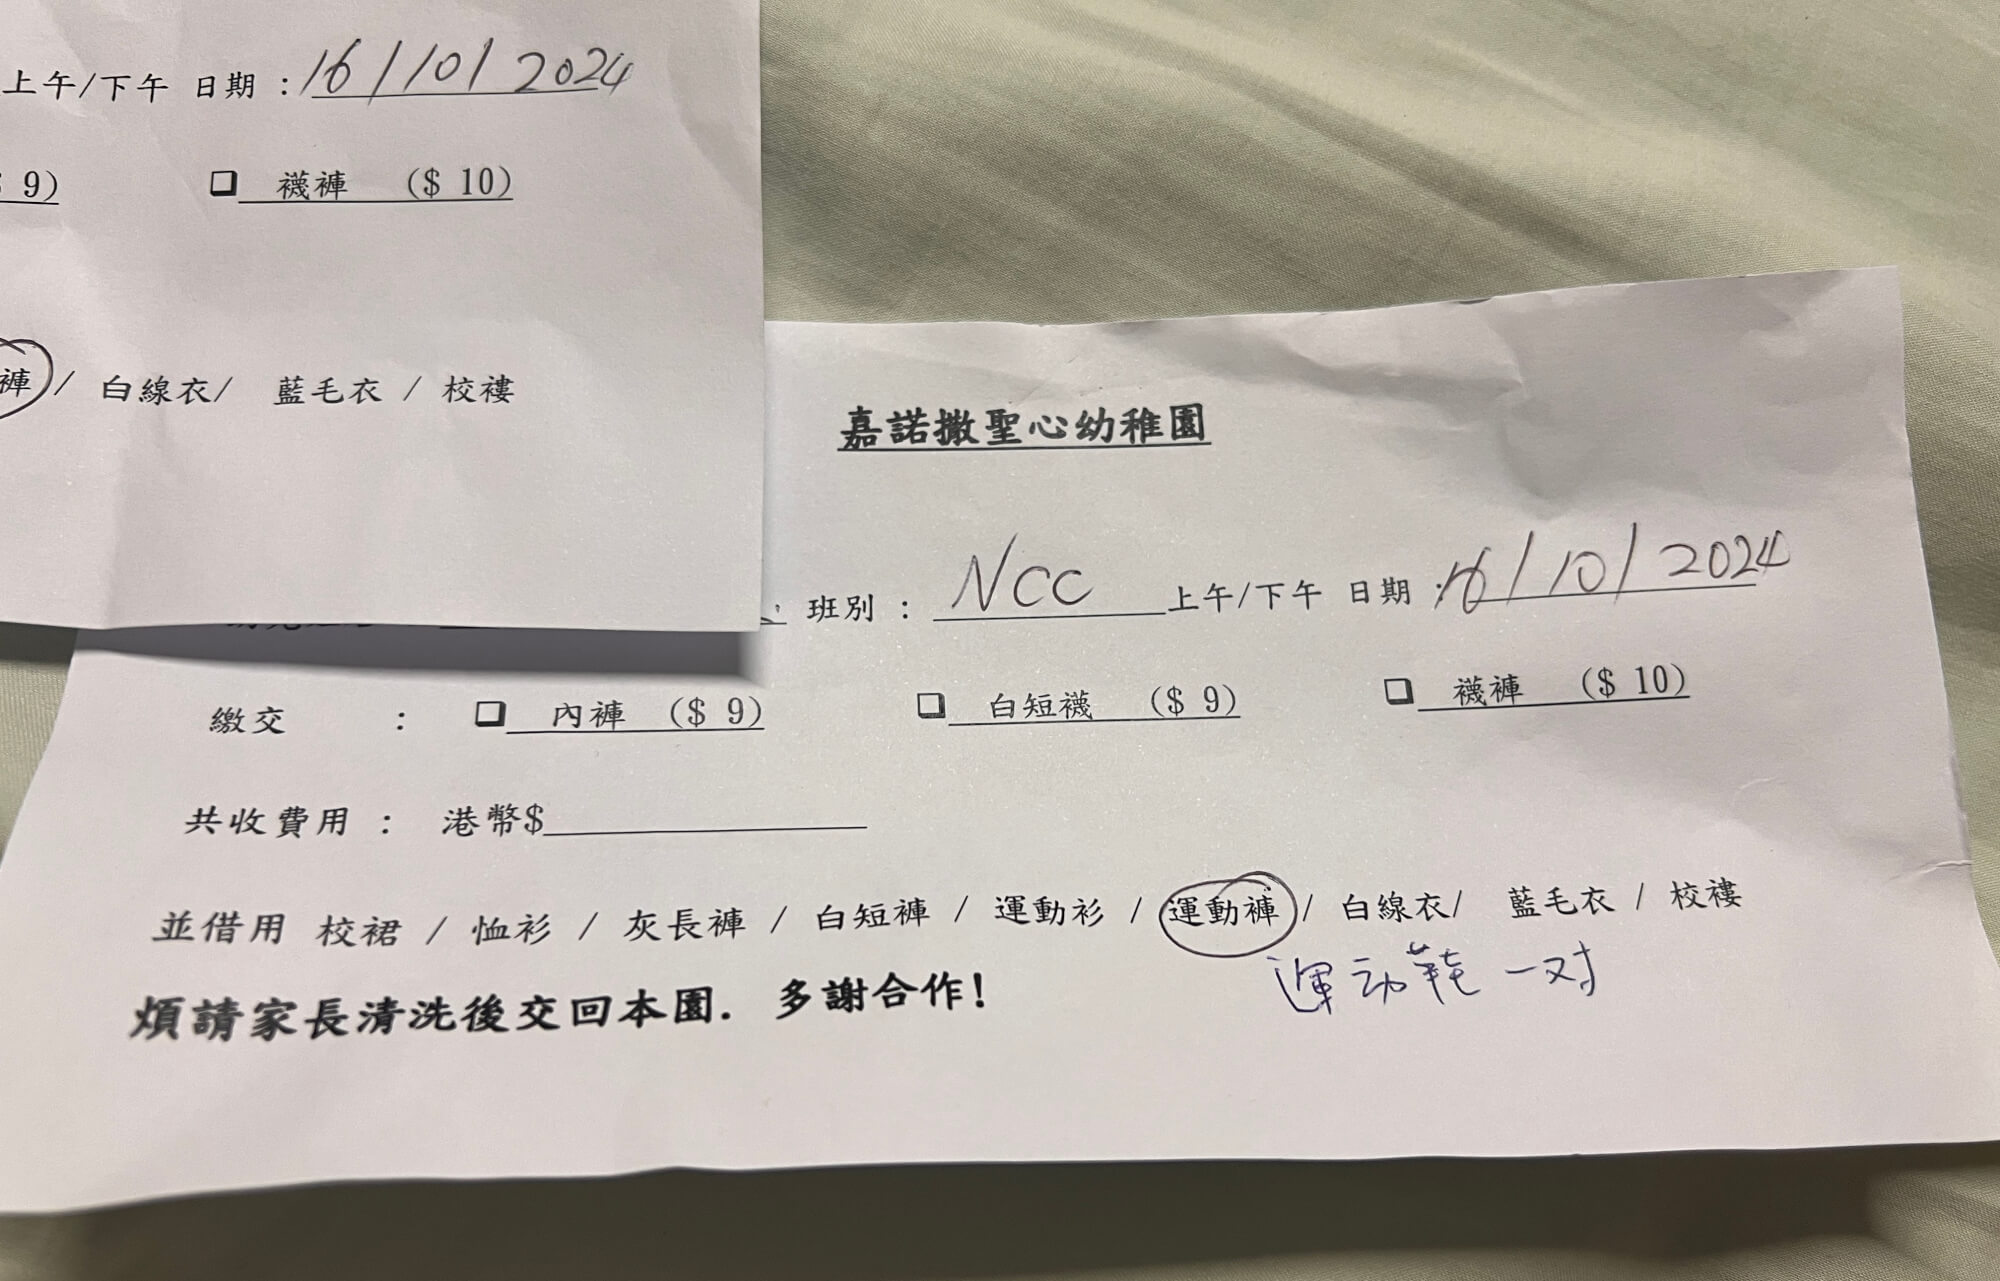 上午/下午 日期：16/10/2024
9)  ❑ 襪褲 ($ 10)
褲 / 白線衣/ 藍毛衣 / 校褸
嘉諾撒聖心幼稚園
班別： NCC 上午/下午 日期：16/10/2024
繳交 ： ❑ 內褲 ($ 9) ❑ 白短襪 ($ 9) ❑ 襪褲 ($ 10)
共收費用： 港幣$
並借用 校裙 / 恤衫 / 灰長褲 / 白短褲 / 運動衫 / 運動褲 / 白線衣/ 藍毛衣 / 校褸
運动鞋一对
煩請家長清洗後交回本園. 多謝合作!